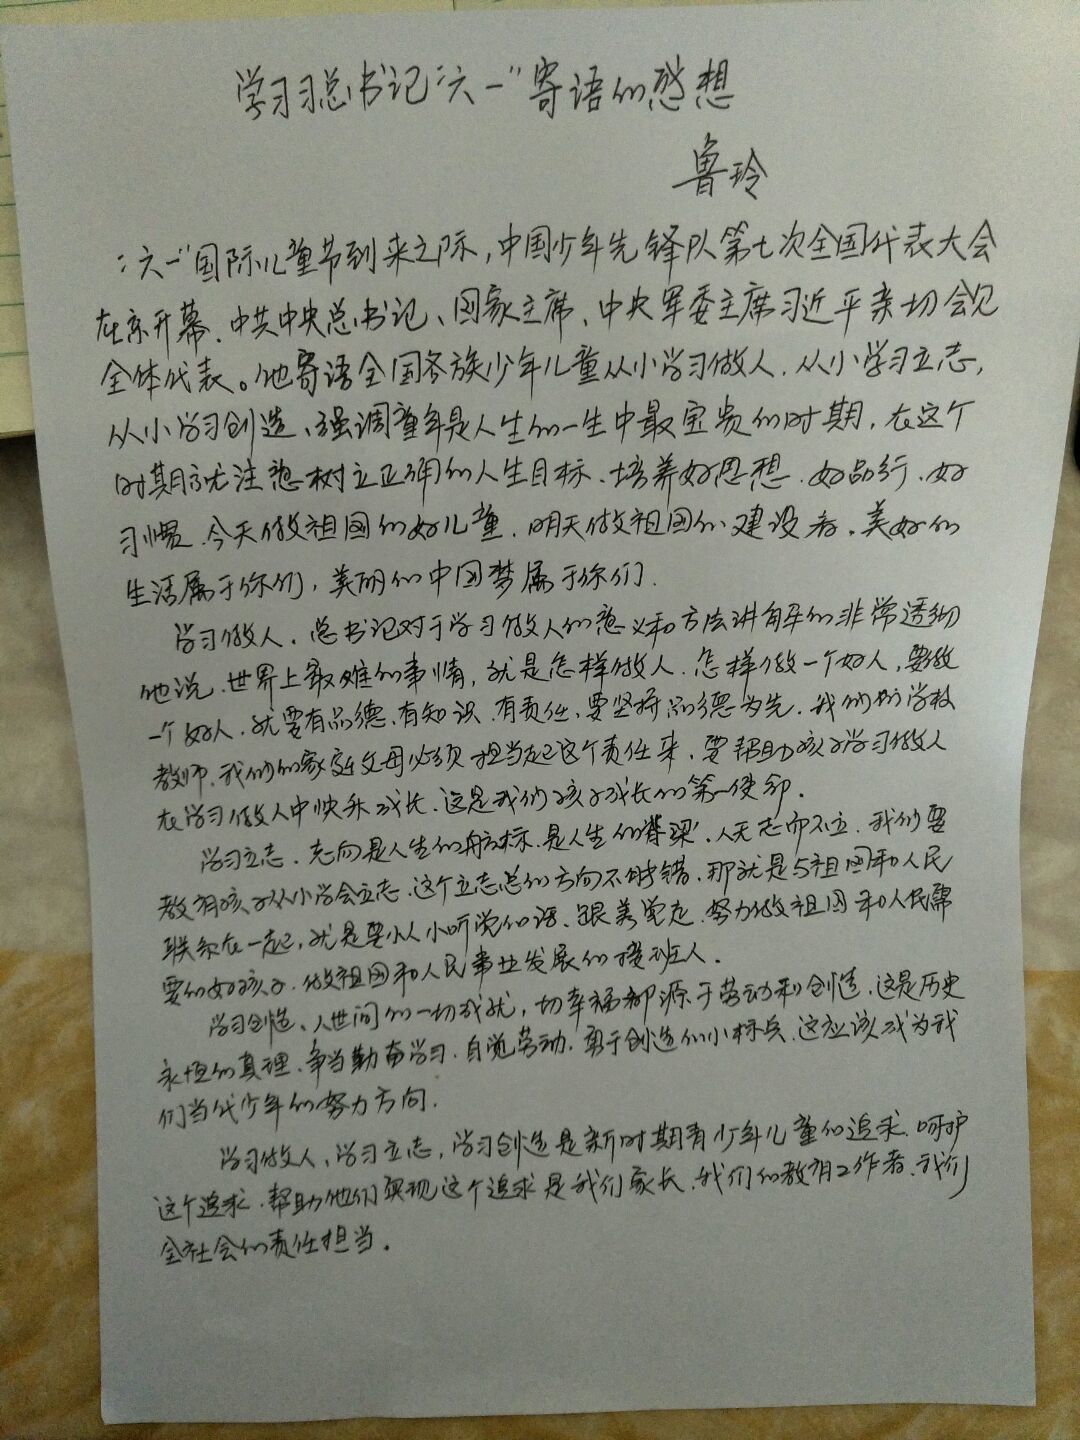 学习习总书记“六一”寄语的感想
鲁玲
“六一”国际儿童节到来之际，中国少年先锋队第七次全国代表大会
在京开幕、中共中央总书记、国家主席、中央军委主席习近平亲切会见
全体代表。他寄语全国各族少年儿童从小学习做人、从小学习立志，
从小学习创造、强调童年是人生的一生中最宝贵的时期，在这个
时期就注意树立正确的人生目标、培养好思想、好品行、好
习惯、今天做祖国的好儿童，明天做祖国的建设者，美好的
生活属于你们，美丽的中国梦属于你们.
学习做人、总书记对于学习做人的意义和方法讲解的非常透彻
他说、世界上最难的事情，就是怎样做人、怎样做一个好人，要做
一个好人，就要有品德、有知识、有责任、要坚持品德为先、我们的学校
教师、我们的家庭父母必须担当起这个责任来，要帮助孩子学习做人
在学习做人中快乐成长、这是我们孩子成长的第一使命.
学习立志、志向是人生的航标、是人生的脊梁、人无志而不立、我们要
教育孩子从小学会立志、这个立志总的方向不能错、那就是与祖国和人民
联系在一起，就是要从小听党的话、跟着党走、努力做祖国和人民需
要的好孩子、做祖国和人民事业发展的接班人.
学习创造、人世间的一切成就，一切幸福都源于劳动和创造、这是历史
永恒的真理、争当勤奋学习、自觉劳动、勇于创造的小标兵、这应该成为我
们当代少年的努力方向.
学习做人、学习立志，学习创造是新时期青少年儿童的追求、呵护
这个追求、帮助他们实现这个追求是我们家长、我们的教育工作者、我们
全社会的责任担当.